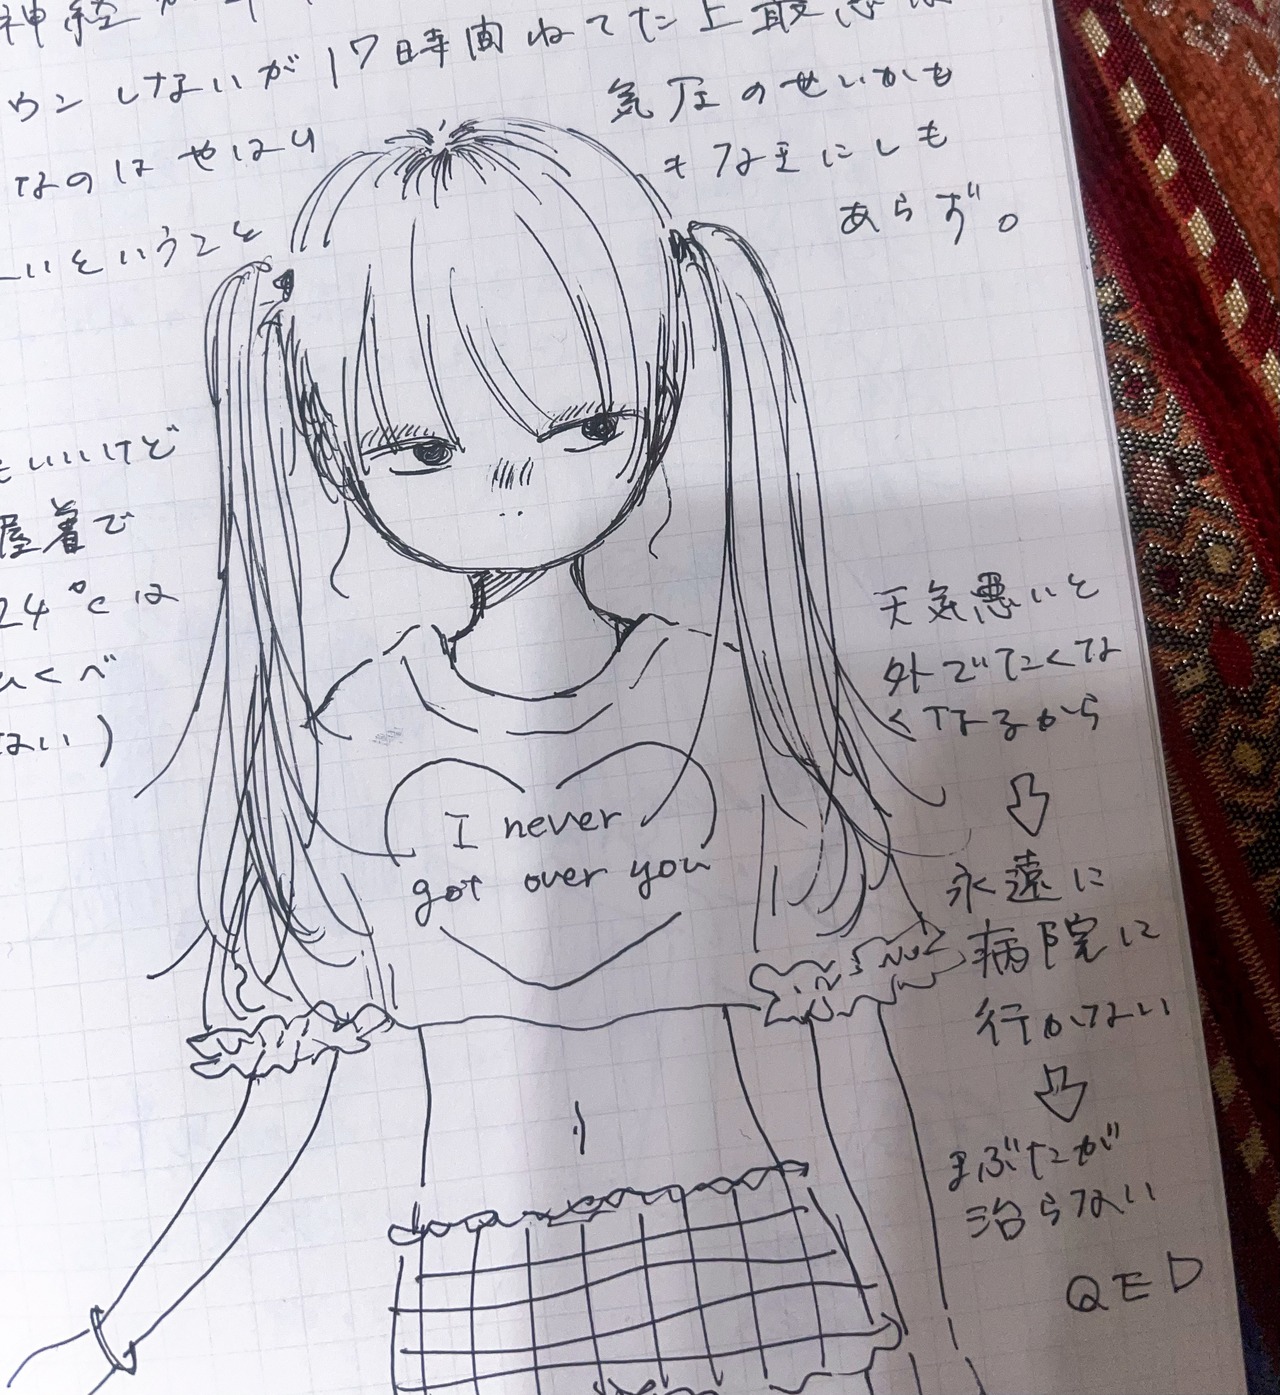 神経
ウンしないが17時間ねてた上最悪は
なのはやはり
しいということ
気圧のせいかも
キアヌにしも
あらず。
もいいけど
屋着で
24℃は
ない)
I never
got over you
天気悪いと
外でたくな
くなるから
⇩
永遠に
病院に
行かない
⇩
まぶたが
治らない
QED